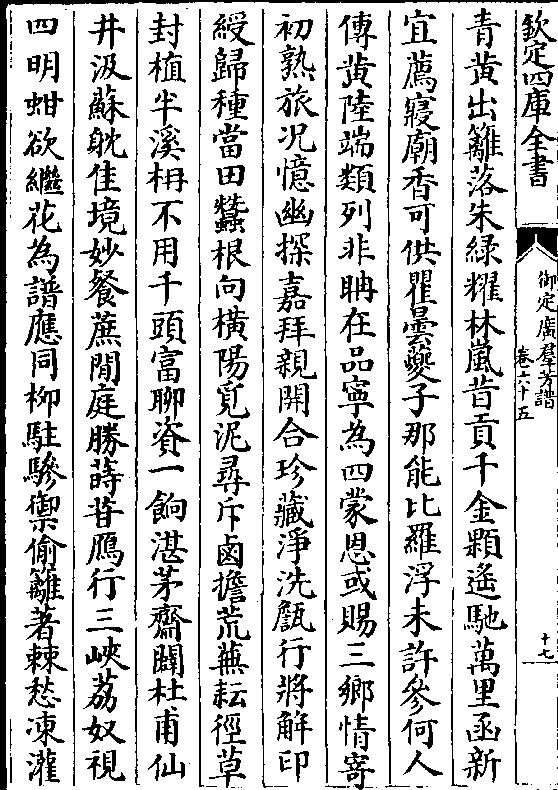 欽定四庫全書
御定廣羣芳譜
卷六十五
十七
青黄出籬落朱緑耀林嵐昔貢千金顆遙馳萬里函新
宜薦寢廟香可供瞿曇夔子那能比羅浮未許參何人
傳黄陸端類列非聃在品寧為四蒙恩或賜三鄉情寄
初熟旅况憶幽探嘉拜親開合珍藏淨洗甔行將解印
綬歸種當田蠶根向横陽覓泥尋斥鹵擔荒蕪耘徑草
封植半溪枏不用千頭富聊資一餉湛茅齋闢杜甫仙
井汲蘇躭佳境妙餐蔗閒庭勝蒔苷鴈行三峽荔奴視
四明蚶欲繼花為譜應同柳駐驂禦偷籬著棘愁凍灌